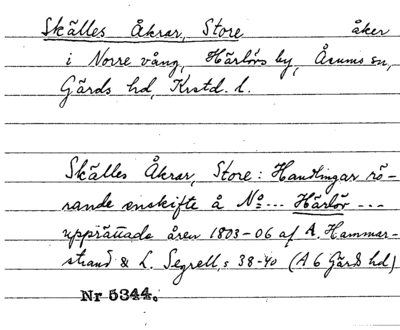 Skälles Åkrar, Store åker
i Norre vång, Härlövs by, Åsums sn,
Gärds hd, Krstd. l.
Skälles Åkrar, Store: Handlingar rö-
rande enskifte å No... Härlöv ...
upprättade åren 1803-06 af A. Hammar-
strand & L. Segrell, s 38-40 (A 6 Gärds hd)
Nr 5344.